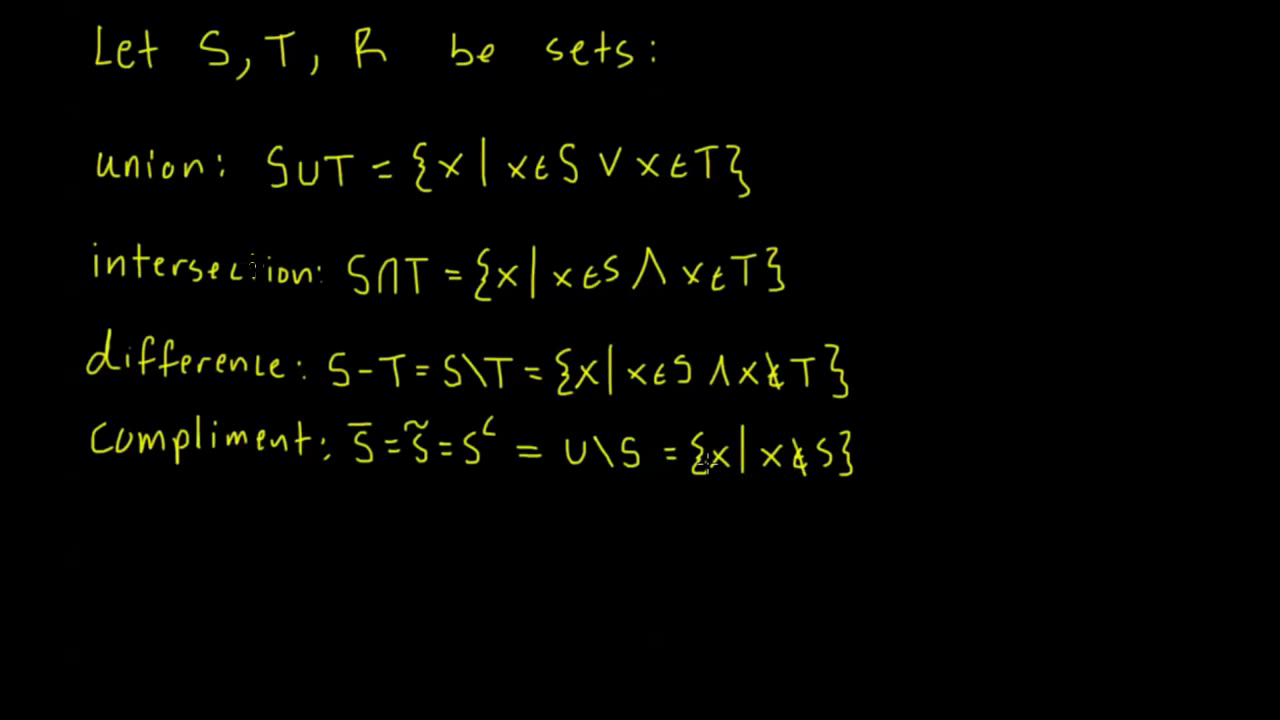 Let S, T, R be sets:
union: S∪T = {x | x∈S ∨ x∈T}
intersection: S∩T = {x | x∈S ∧ x∈T}
difference: S-T = S\T = {x | x∈S ∧ x∉T}
Compliment: S̅ = S̃ = Sᶜ = U\S = {x | x∉S}